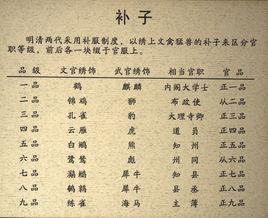 补子
明清两代采用补服制度，以绣上文禽猛兽的补子来区分官
职等级，前后各一块缀于官服上。
品级 文官绣饰 武官绣饰 相当官职 官品
一品 鹤 麒麟 内阁大学士 正一品
二品 锦鸡 狮 布政使 从二品
三品 孔雀 豹 大理寺卿 正三品
四品 云雁 虎 道员 正四品
五品 白鹇 熊 知州 正五品
六品 鹭鸶 彪 州同 从六品
七品 犀牛 知县 正七品
八品 鹌鹑 犀牛 县丞 正八品
九品 练雀 海马 主簿 正九品